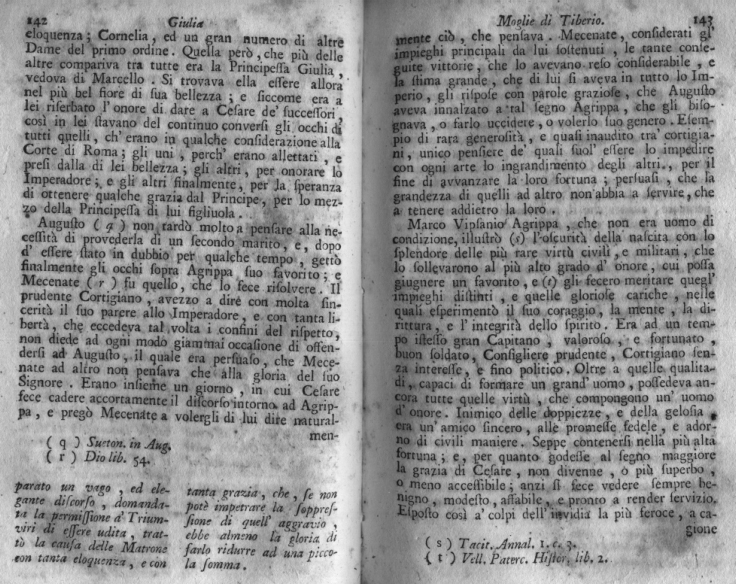 142 Giulia
eloquenza; Cornelia, ed un gran numero di altre
Dame del primo ordine. Quella però, che più delle
altre compariva tra tutte era la Principeſſa Giulia,
vedova di Marcello. Si trovava ella eſſere allora
nel più bel fiore di ſua bellezza; e ſiccome era a
lei riſerbato l'onore di dare a Ceſare de' ſucceſſori,
così in lei ſtavano del continuo converſi gli occhi di
tutti quelli, ch'erano in qualche conſiderazione alla
Corte di Roma; gli uni, perch' erano allettati, e
preſi dalla di lei bellezza; gli altri, per onorare lo
Imperadore; e gli altri finalmente, per la ſperanza
di ottenere qualche grazia dal Principe, per lo mez-
zo della Principeſſa di lui figliuola.
Auguſto (q) non tardò molto a penſare alla ne-
ceſſità di provederla di un ſecondo marito, e, dopo
d' eſſere ſtato in dubbio per qualche tempo, gettò
finalmente gli occhi ſopra Agrippa, ſuo favorito; e
Mecenate (r) fu quello, che lo fece riſolvere. Il
prudente Cortigiano, avezzo a dire con molta ſin-
cerità il ſuo parere allo Imperadore, e con tanta li-
bertà, che eccedeva tal volta i confini del riſpetto,
non diede ad ogni modo giammai occaſione di offen-
derſi ad Auguſto, il quale era perſuaſo, che Mece-
nate ad altro non penſava che alla gloria del ſuo
Signore. Erano inſieme un giorno, in cui Ceſare
fece cadere accortamente il diſcorſo intorno ad Agrip-
pa, e pregò Mecenate a volergli di lui dire natural-
men-
(q) Sueton. in Aug.
(r) Dio lib. 54.
parato un vago, ed ele-
gante diſcorſo, domanda-
ta la permiſſione a' Trium-
viri di eſſere udita, trat-
tò la cauſa delle Matrone
con tanta eloquenza, e con
tanta grazia, che, ſe non
potè impetrare la ſoppreſ-
ſione di quell' aggravio,
ebbe almeno la gloria di
farlo ridurre ad una picco-
la ſomma.
Moglie di Tiberio. 143
mente ciò, che penſava. Mecenate, conſiderati gl'
impieghi principali da lui ſoſtenuti, le tante conſe-
guite vittorie, che lo avevano reſo conſiderabile, e
la ſtima grande, che di lui ſi aveva in tutto lo Im-
perio, gli riſpoſe con parole grazioſe, che Auguſto
aveva innalzato a tal ſegno Agrippa, che gli biſo-
gnava, o farlo uccidere, o volerlo ſuo genero. Eſem-
pio di rara generoſità, e quaſi inaudito tra' cortigia-
ni, unico penſiere de' quali ſuol' eſſere lo impedire
con ogni arte lo ingrandimento degli altri, per il
fine di avvanzare la loro fortuna; perſuaſi, che la
grandezza di quelli ad altro non abbia a ſervire, che
a tenere addietro la loro.
Marco Vipſanio Agrippa, che non era uomo di
condizione, illuſtrò (s) l'oſcurità della naſcita con lo
ſplendore delle più rare virtù civili, e militari, che
lo ſollevarono al più alto grado d' onore, cui poſſa
giugnere un favorito, e (t) gli fecero meritare quegl'
impieghi diſtinti, e quelle glorioſe cariche, nelle
quali eſperimentò il ſuo coraggio, la mente, la di-
rittura, e l' integrità dello ſpirito. Era ad un tem-
po iſteſſo gran Capitano, valoroſo, e fortunato,
buon ſoldato, Conſigliere prudente, Cortigiano ſen-
za intereſſe, e fino politico. Oltre a quelle qualita-
di, capaci di formare un grand' uomo, poſſedeva an-
cora tutte quelle virtù, che compongono un' uomo
d' onore. Inimico delle doppiezze, e della geloſia
era un' amico ſincero, alle promeſſe fedele, e ador-
no di civili maniere. Seppe contenerſi nella più alta
fortuna; e, per quanto godeſſe al ſegno maggiore
la grazia di Ceſare, non divenne, o più ſuperbo,
o meno acceſſibile; anzi ſi fece vedere ſempre be-
nigno, modeſto, affabile, e pronto a render ſervizio.
Eſpoſto così a' colpi dell' invidia la più feroce, a ca-
gione
(s) Tacit. Annal. 1. c. 3.
(t) Vell. Paterc. Hiſtor. lib. 2.